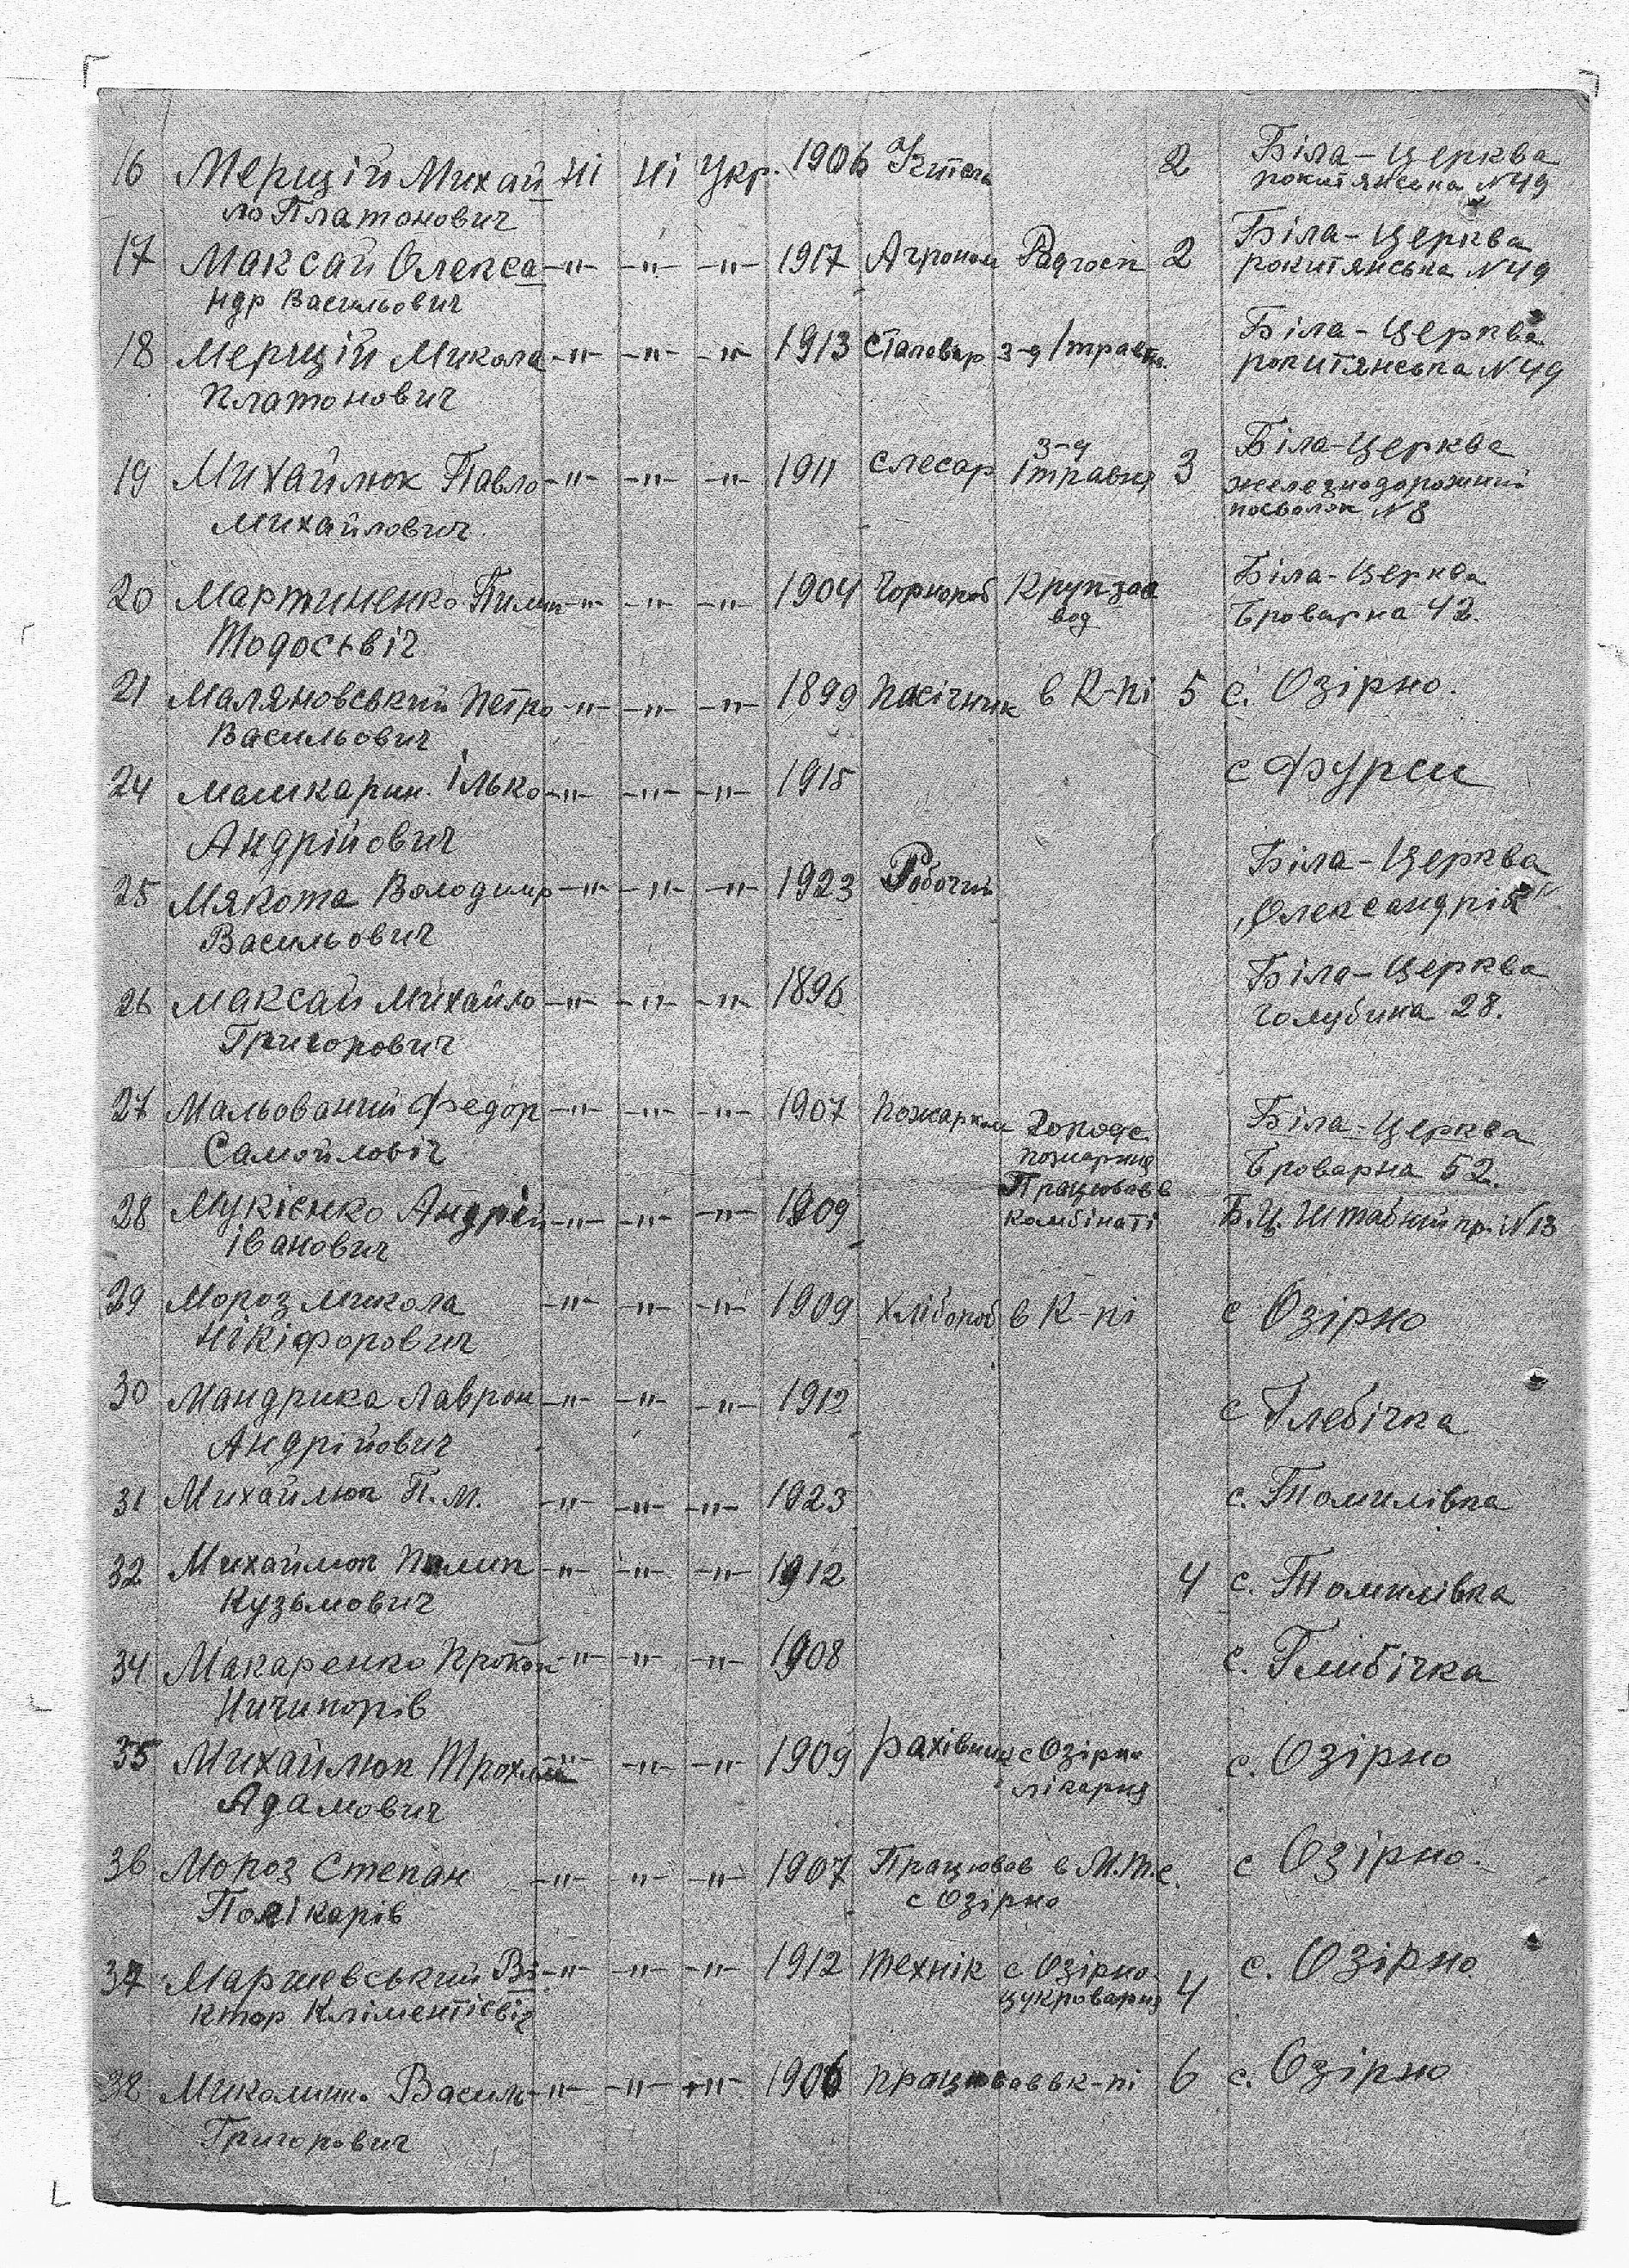 16 Мерщій Михай ні ні Укр. 1906 Учтель 2 Біла-Церква
ло Платонович рокитянська N49
17 Максай Олекса -"- -"- -"- 1917 Агроном Радгосп 2 Біла-Церква
ндр Васильович рокитянська N49
18 Мерщій Микола -"- -"- -"- 1913 сталевар з-д 1 травня. Біла-Церква
Платонович рокитянська N49
19 Михайлюк Павло -"- -"- -"- 1911 слесар з-д 1 травня 3 Біла-Церква
Михайлович железнодорожний
посьолок N8
20 Мартиненко Пилип -"- -"- -"- 1904 Чорнороб Крупзаа Біла-Церква
Тодосьвіч вод Броварна 42.
21 Маляновський Петро -"- -"- -"- 1899 пасічник в К-пі 5 с. Озірно.
Васильович
24 Ілько -"- -"- -"- 1915 с Фурси
Андрійович
25 Мякота Володимир -"- -"- -"- 1923 Робочий Біла-Церква
Васильович "Олександрія"
26 Максай Михайло -"- -"- -"- 1896 Біла-Церква
Григорович Голубина 28.
27 Мальований Федор -"- -"- -"- 1907 Біла-Церква
Самойловіч пожарня Броварна 52.
28 Мукієнко Андрій -"- -"- -"- 1909 Працював в Б.Ц. Штабний пр. N13
Іванович комбінаті
29 Мороз Микола -"- -"- -"- 1909 хлібороб в К-пі с Озірно
Нікіфорович
30 Мандрика Лаврон -"- -"- -"- 1912 с Глебічка
Андрійович
31 Михайлюк П.М. -"- -"- -"- 1923 с. Томилівка
32 Михайлюк Пилип -"- -"- -"- 1912 4 с. Томилівка
Кузьмович
34 Макаренко Прокоп -"- -"- -"- 1908 с. Глибічка
Ничипорів
35 Михайлюк -"- -"- -"- 1909 рахівник с Озірно с. Озірно
Адамович лікарня
36 Мороз Степан -"- -"- -"- 1907 Працював в М.Т.С. с Озірно.
Полікарів с Озірно
37 Маршевський Ві -"- -"- -"- 1912 технік с Озірно 4 с. Озірно
ктор Кліментієвіч цукроварня
38 Василь -"- -"- -"- 1906 працював в к-пі 6 с. Озірно
Григорович